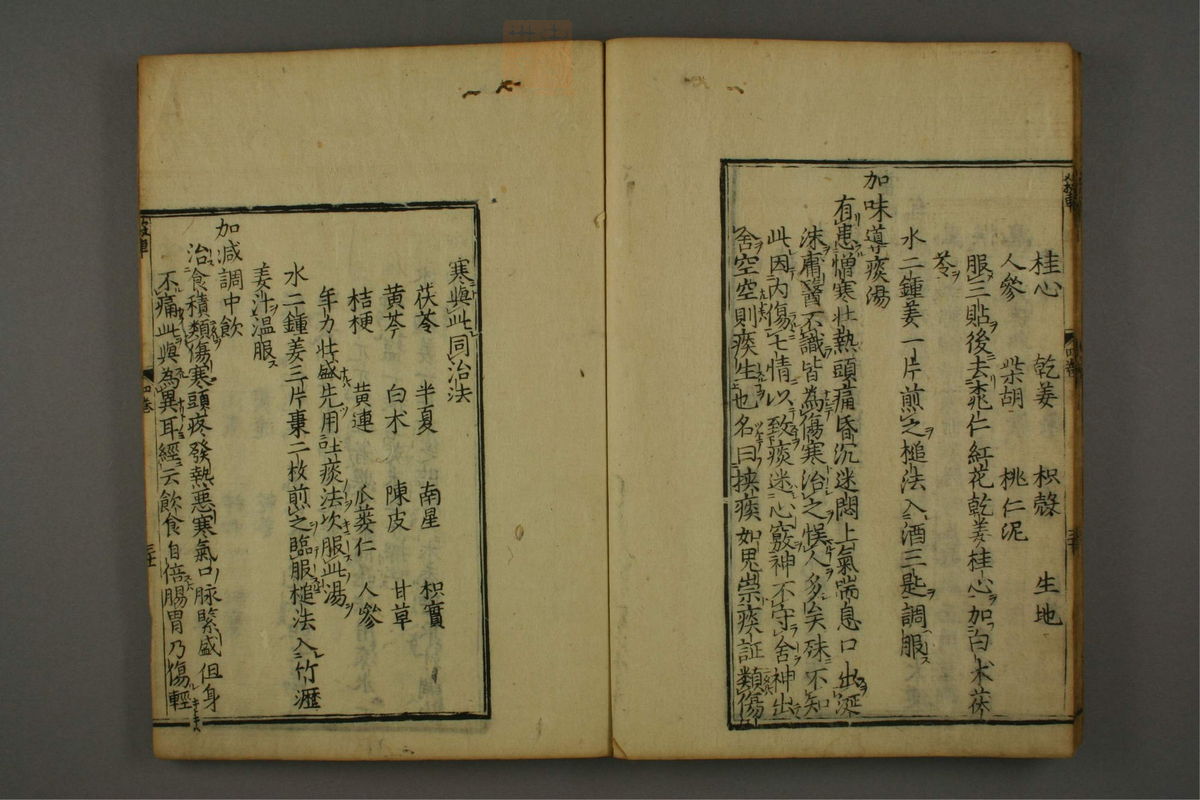 桂心 乾姜 枳殼 生地
人參 柴胡 桃仁泥
服三貼後去桃仁紅花乾姜桂心加白朮茯
苓
水二鍾姜一片煎之槌法入酒三匙調服
加味導痰湯
有患憎寒壯熱頭痛昏沉迷悶上氣喘息口出涎
沫庸醫不識皆為傷寒治之悞人多矣殊不知
此因內傷七情以致痰迷心竅神不守舍神出
舍空空則痰生也名曰挾痰如鬼祟痰証類傷
寒與此同治法
茯苓 半夏 南星 枳實
黃芩 白朮 陳皮 甘草
桔梗 黃連 瓜蔞仁 人參
年力壯盛先用吐痰法次服此湯
水二鍾姜三片棗二枚煎之臨服槌法入竹瀝
姜汁溫服
加減調中飲
治食積類傷寒頭疼發熱惡寒氣口脉緊盛但身
不痛此與為異耳經云飲食自倍腸胃乃傷輕
四卷